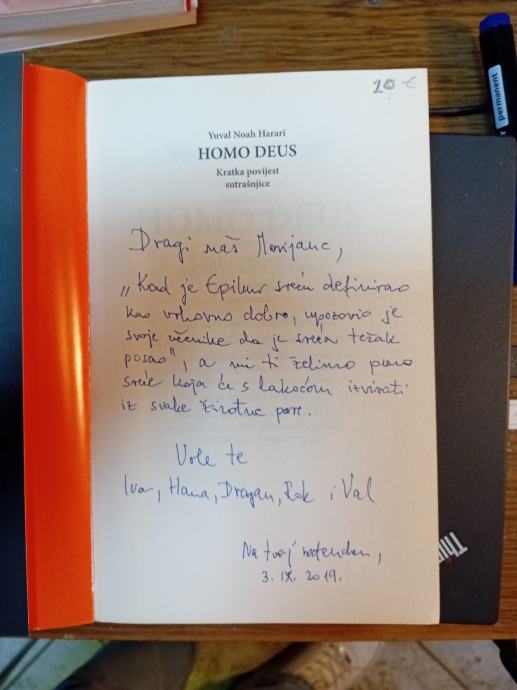 20 €
permanent
Yuval Noah Harari
HOMO DEUS
Kratka povijest
sutrašnjice
Dragi naš Marijane,
„Kad je Epikur sreću definirao
kao vrhovno dobro, upozorio je
svoje učenike da je sreća težak
posao", a mi ti želimo puno
sreće koja će s lakoćom izvirati
iz svake životne pore.
Vole te
Ivan, Hana, Dragan, Rok i Val
Na tvoj rođendan,
3. IX. 2019.
Thin